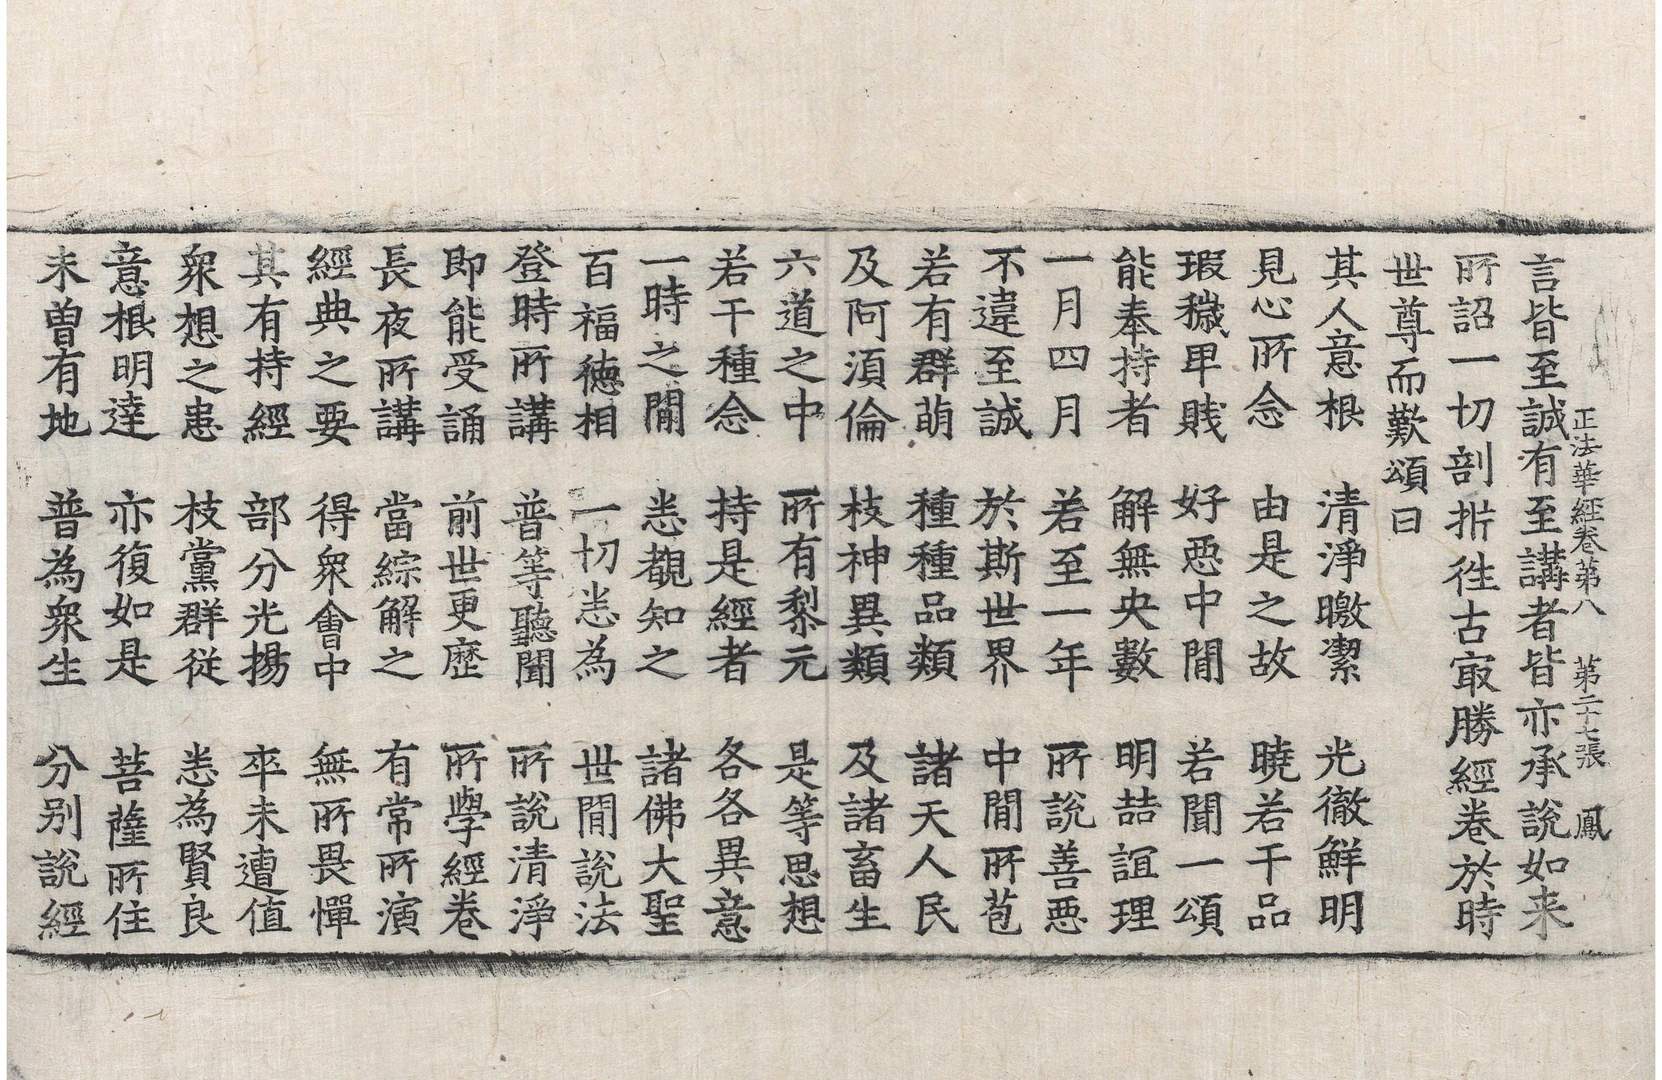 正法華經卷第八 第二十七張 鳳
言皆至誠有至講者皆亦承說如来
所詔一切剖㭊徃古㝡勝經卷於時
世尊而歎頌曰
其人意根 清淨曒潔 光徹鮮明
見心所念 由是之故 曉若干品
瑕穢卑賎 好惡中閒 若聞一頌
能奉持者 解無央數 明喆誼理
一月四月 若至一年 所說善惡
不違至誠 於斯世界 中閒所苞
若有群萌 種種品類 諸天人民
及阿湏倫 枝神異類 及諸畜生
六道之中 所有黎元 是等思想
若干種念 持是經者 各各異意
一時之閒 悉覩知之 諸佛大聖
百福德相 一切悉為 世閒說法
登時所講 普等聽聞 所說清淨
即能受誦 前世更歷 所學經卷
長夜所講 當綜解之 有常所演
經典之要 得衆會中 無所畏憚
其有持經 部分光揚 卒未遭值
衆想之患 枝黨群從 悉為賢良
意根明達 亦復如是 菩薩所住
未曾有地 普為衆生 分别說經